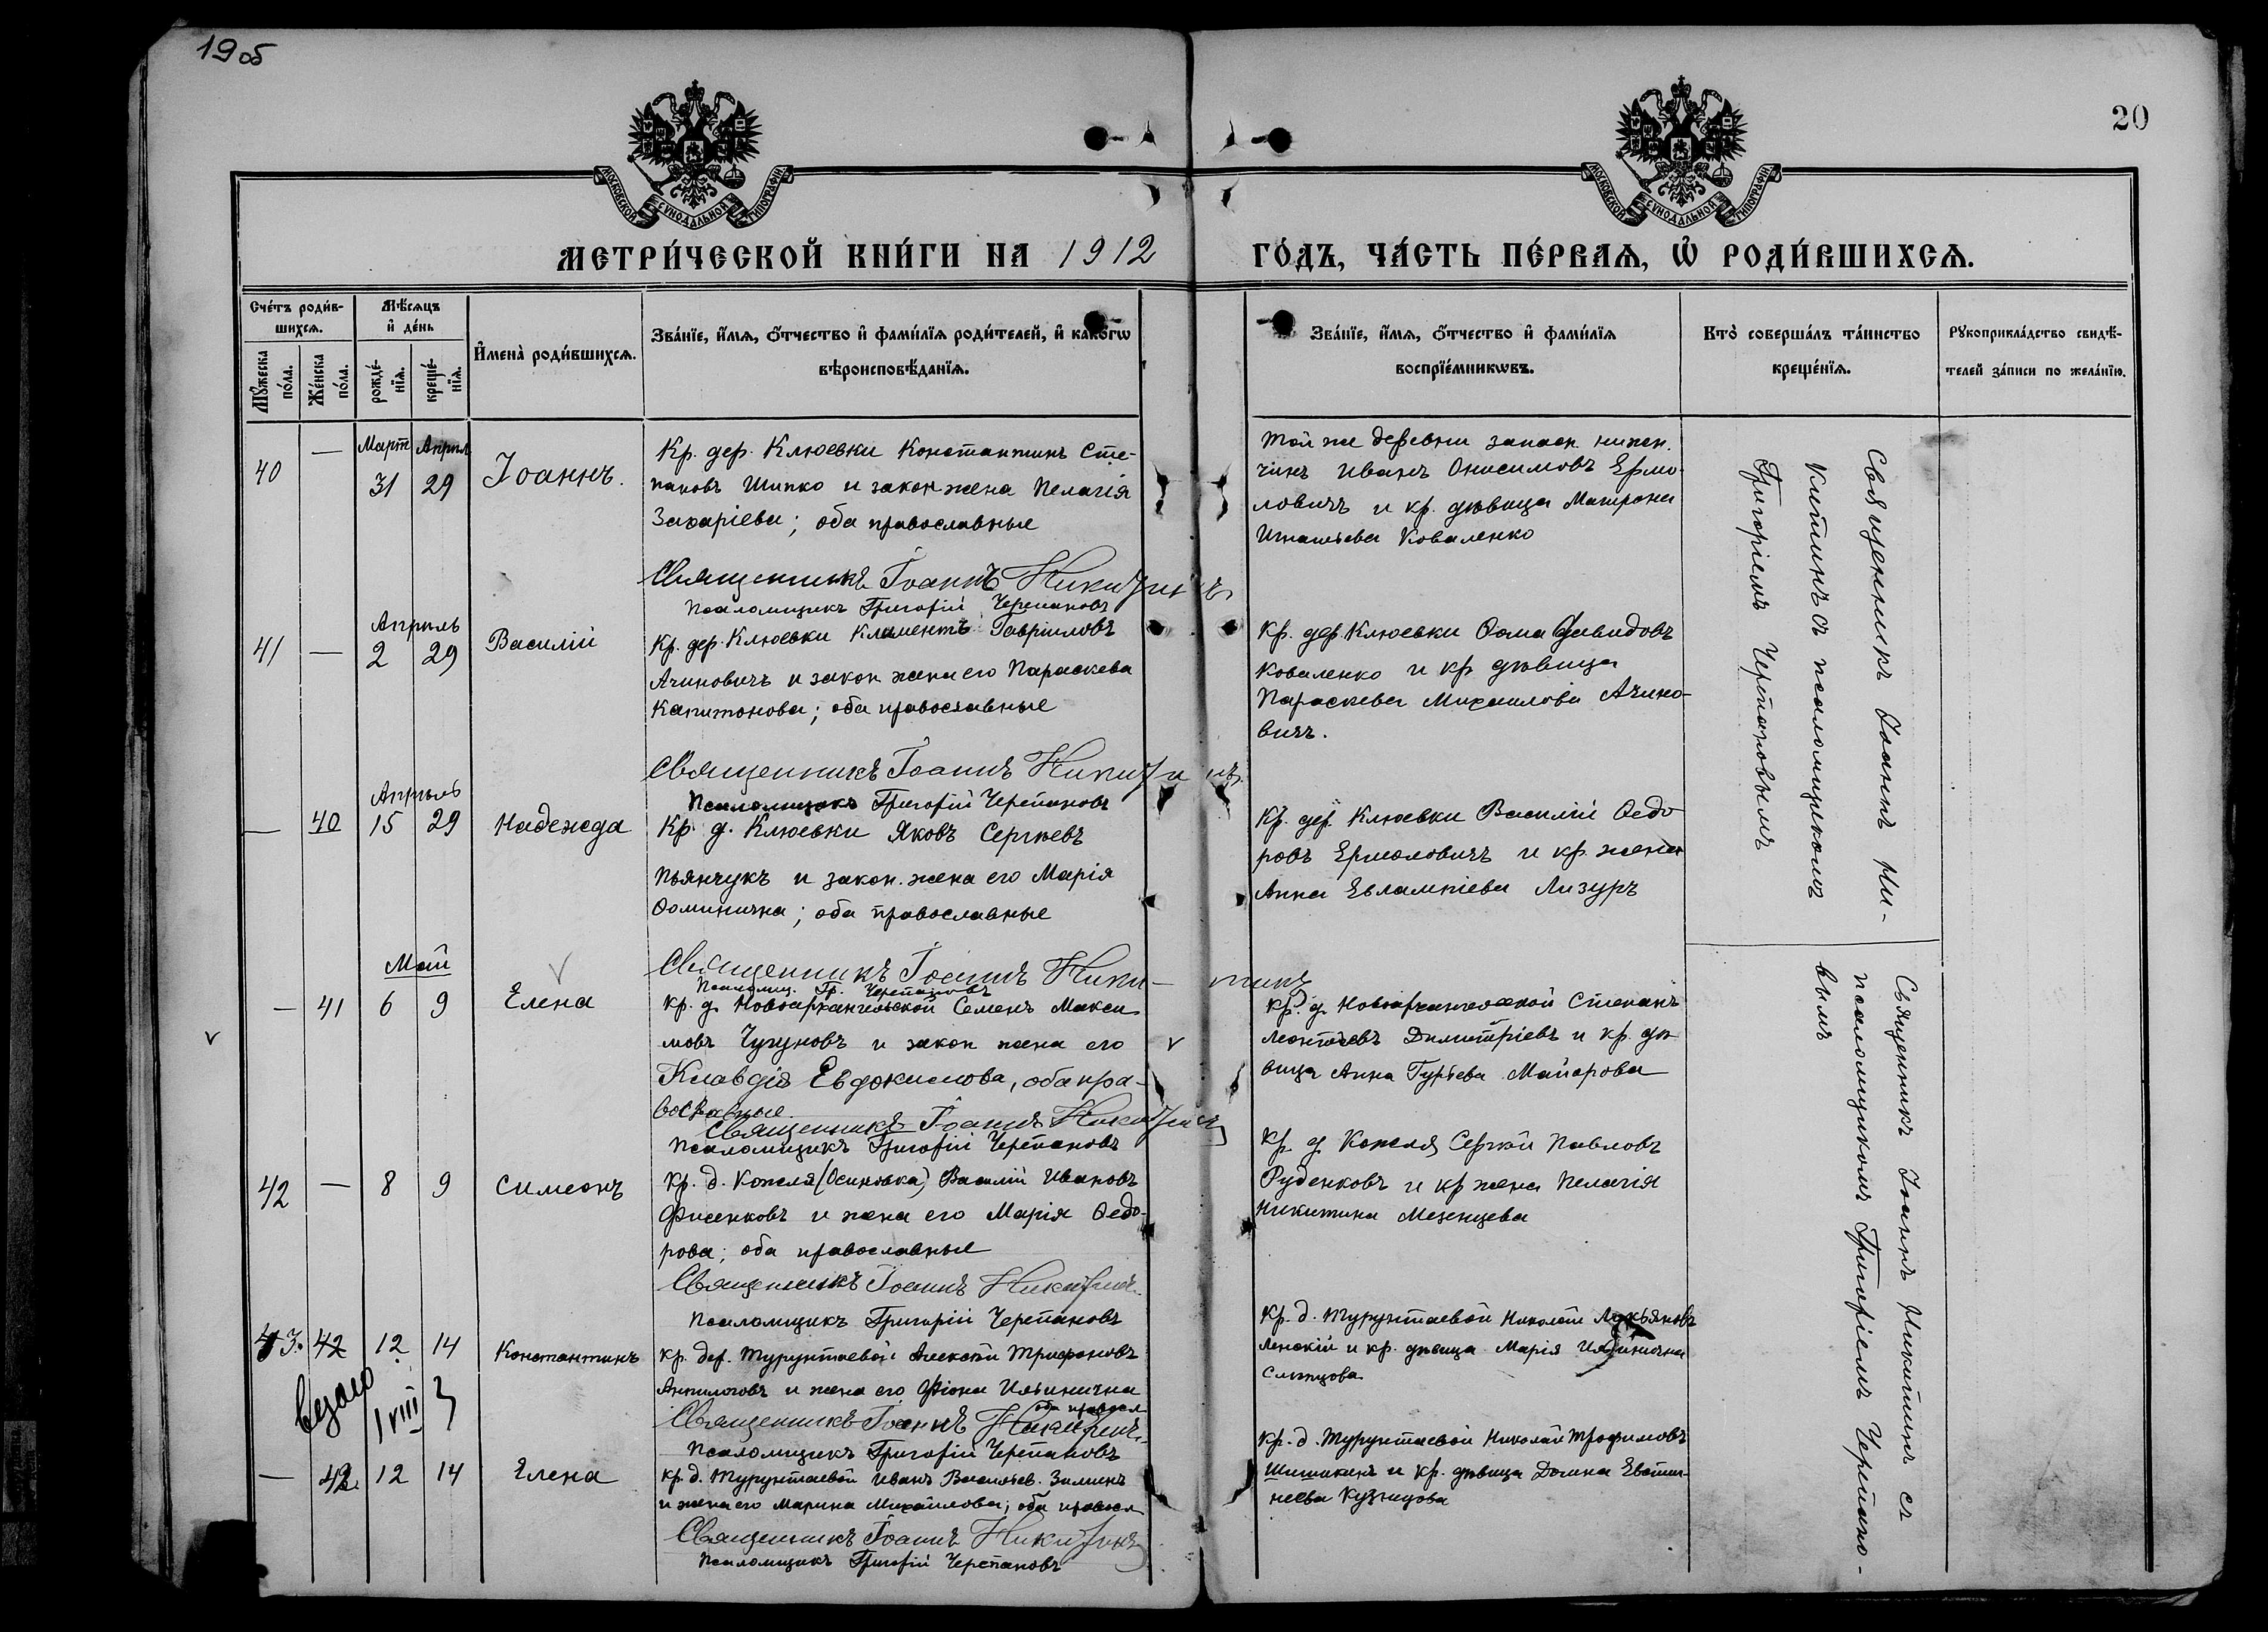 19 об
20
МОСКОВСКОЙ СУНОДАЛЬНОЙ ТИПОГРАФІИ
МОСКОВСКОЙ СУНОДАЛЬНОЙ ТИПОГРАФІИ
МЕТРИ́ЧЕСКОЙ КНИ́ГИ НА 1912 ГО́ДЪ, ЧА́СТЬ ПЕ́РВАѦ, Ѡ РОДИ́ВШИХСѦ.
Сче́тъ роди́в-
шихсѧ.
Мꙋ́жеска
по́ла.
Же́нска
по́ла.
Мѣ́сѧцъ
и҆ де́нь
рожде́-
нїѧ.
креще́-
нїѧ.
И҆мена̀ роди́вшихсѧ.
Зва́нїе, и҆́мѧ, ѻ҆́тчество и҆ фами́лїѧ роди́телей, и҆ како́гѡ
вѣроисповѣ́данїѧ.
Зва́нїе, и҆́мѧ, ѻ҆́тчество и҆ фами́лїѧ
воспрїе́мникѡвъ.
Кто̀ соверша́лъ та́инство
креще́нїѧ.
Рꙋкоприкла́дство свидѣ́-
телей за́писи по жела́нїю.
40 — Март 31 Април 29 Іоаннъ.
Кр. дер. Клюевки Константинъ Сте-
пановъ Шипко и закон жена Пелагія
Захаріева; оба православные
Священникъ Іоаннъ Никитинъ
Псаломщикъ Григорій Черепановъ
Той же деревни запасн. нижн.
чинъ Иванъ Онисимовъ Ермо-
ловичъ и кр. дѣвица Матрона
Игнатьева Коваленко
41 — Апрѣль 2 29 Василій
Кр. дер. Клюевки Климентъ Гавріиловъ
Ачиновичъ и закон жена его Параскева
Капитонова; оба православные
Священникъ Іоаннъ Никитинъ
Псаломщикъ Григорій Черепановъ
Кр. дер. Клюевки Ѳома Давидовъ
Коваленко и кр дѣвица
Параскева Михаилова Ачино-
вичъ.
— 40 Апрѣль 15 29 Надежда
Кр. д. Клюевки Яковъ Сергѣевъ
Пьянчукъ и закон. жена его Марія
Ѳоминична; оба православные
Священникъ Іоаннъ Ники-тинъ
Псаломщ. Гр. Черепановъ
Кр. дер. Клюевки Василій Ѳедо
ровъ Ермоловичъ и кр. жена
Анна Евлампіева Лизуръ
Священникъ Іоаннъ Ни-
китинъ съ псаломщикомъ
Григоріемъ Черепановымъ
— 41 Май 6 9 Елена
Кр. д. Новоархангельской Семенъ Макси
мовъ Чугуновъ и закон жена его
Клавдія Евдокимова, оба пра-
вославные.
Священникъ Іоаннъ Никитинъ
Псаломщикъ Григорій Черепановъ
Кр. д. Новоархангельской Степанъ
Леонтьевъ Димитріевъ и кр. дѣ
вица Анна Гурьева Майорова
42 — 8 9 Симеонъ
Кр. д. Кожеля (Осиновка) Василій Ивановъ
Фисенковъ и жена его Марія Ѳедо-
рова; оба православные
Священникъ Іоаннъ Никитинъ
Псаломщикъ Григорій Черепановъ
Кр д Кожеля Сергѣй Павловъ
Руденковъ и кр жена Пелагія
Никитина Мезенцева
43. 42 12 14 Константинъ
1 VIII
Кр. дер. Турунтаевой Алексѣй Трифоновъ
Анпилоговъ и жена его Фіона Ильинична
оба правосл
Священникъ Іоаннъ Никитинъ
Псаломщикъ Григорій Черепановъ
Кр. д. Турунтаевой Николай Лукьяновъ
Ленскій и кр. дѣвица Марія Ильинична
Слѣпцова
— 42. 12 14 Елена
Кр. д. Турунтаевой Иванъ Васильев. Зиминъ
и жена его Марина Михайлова; оба правосл
Священникъ Іоаннъ Никитинъ
Псаломщикъ Григорій Черепановъ
Кр. д. Турунтаевой Николай Трофимовъ
Шишкинъ и кр. дѣвица Домна Евстиг-
неева Кузнецова
Священникъ Іоаннъ Никитинъ съ
псаломщикомъ Григоріемъ Черепано-
вымъ